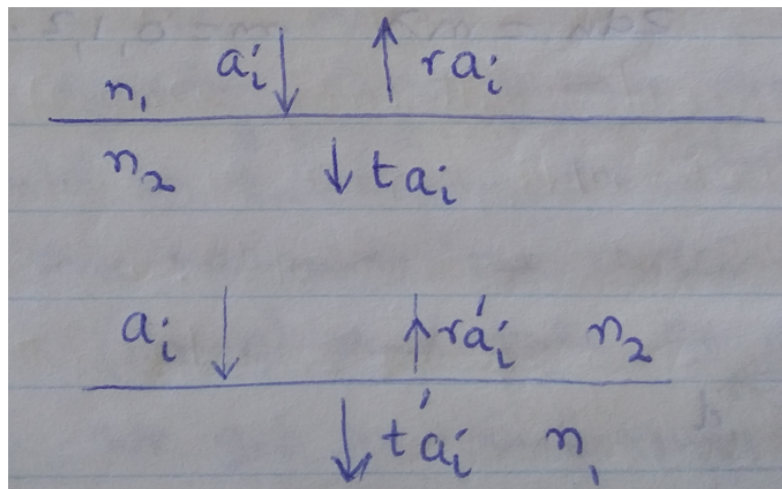 aᵢ raᵢ
n₁
n₂ taᵢ
aᵢ r'aᵢ n₂
t'aᵢ n₁